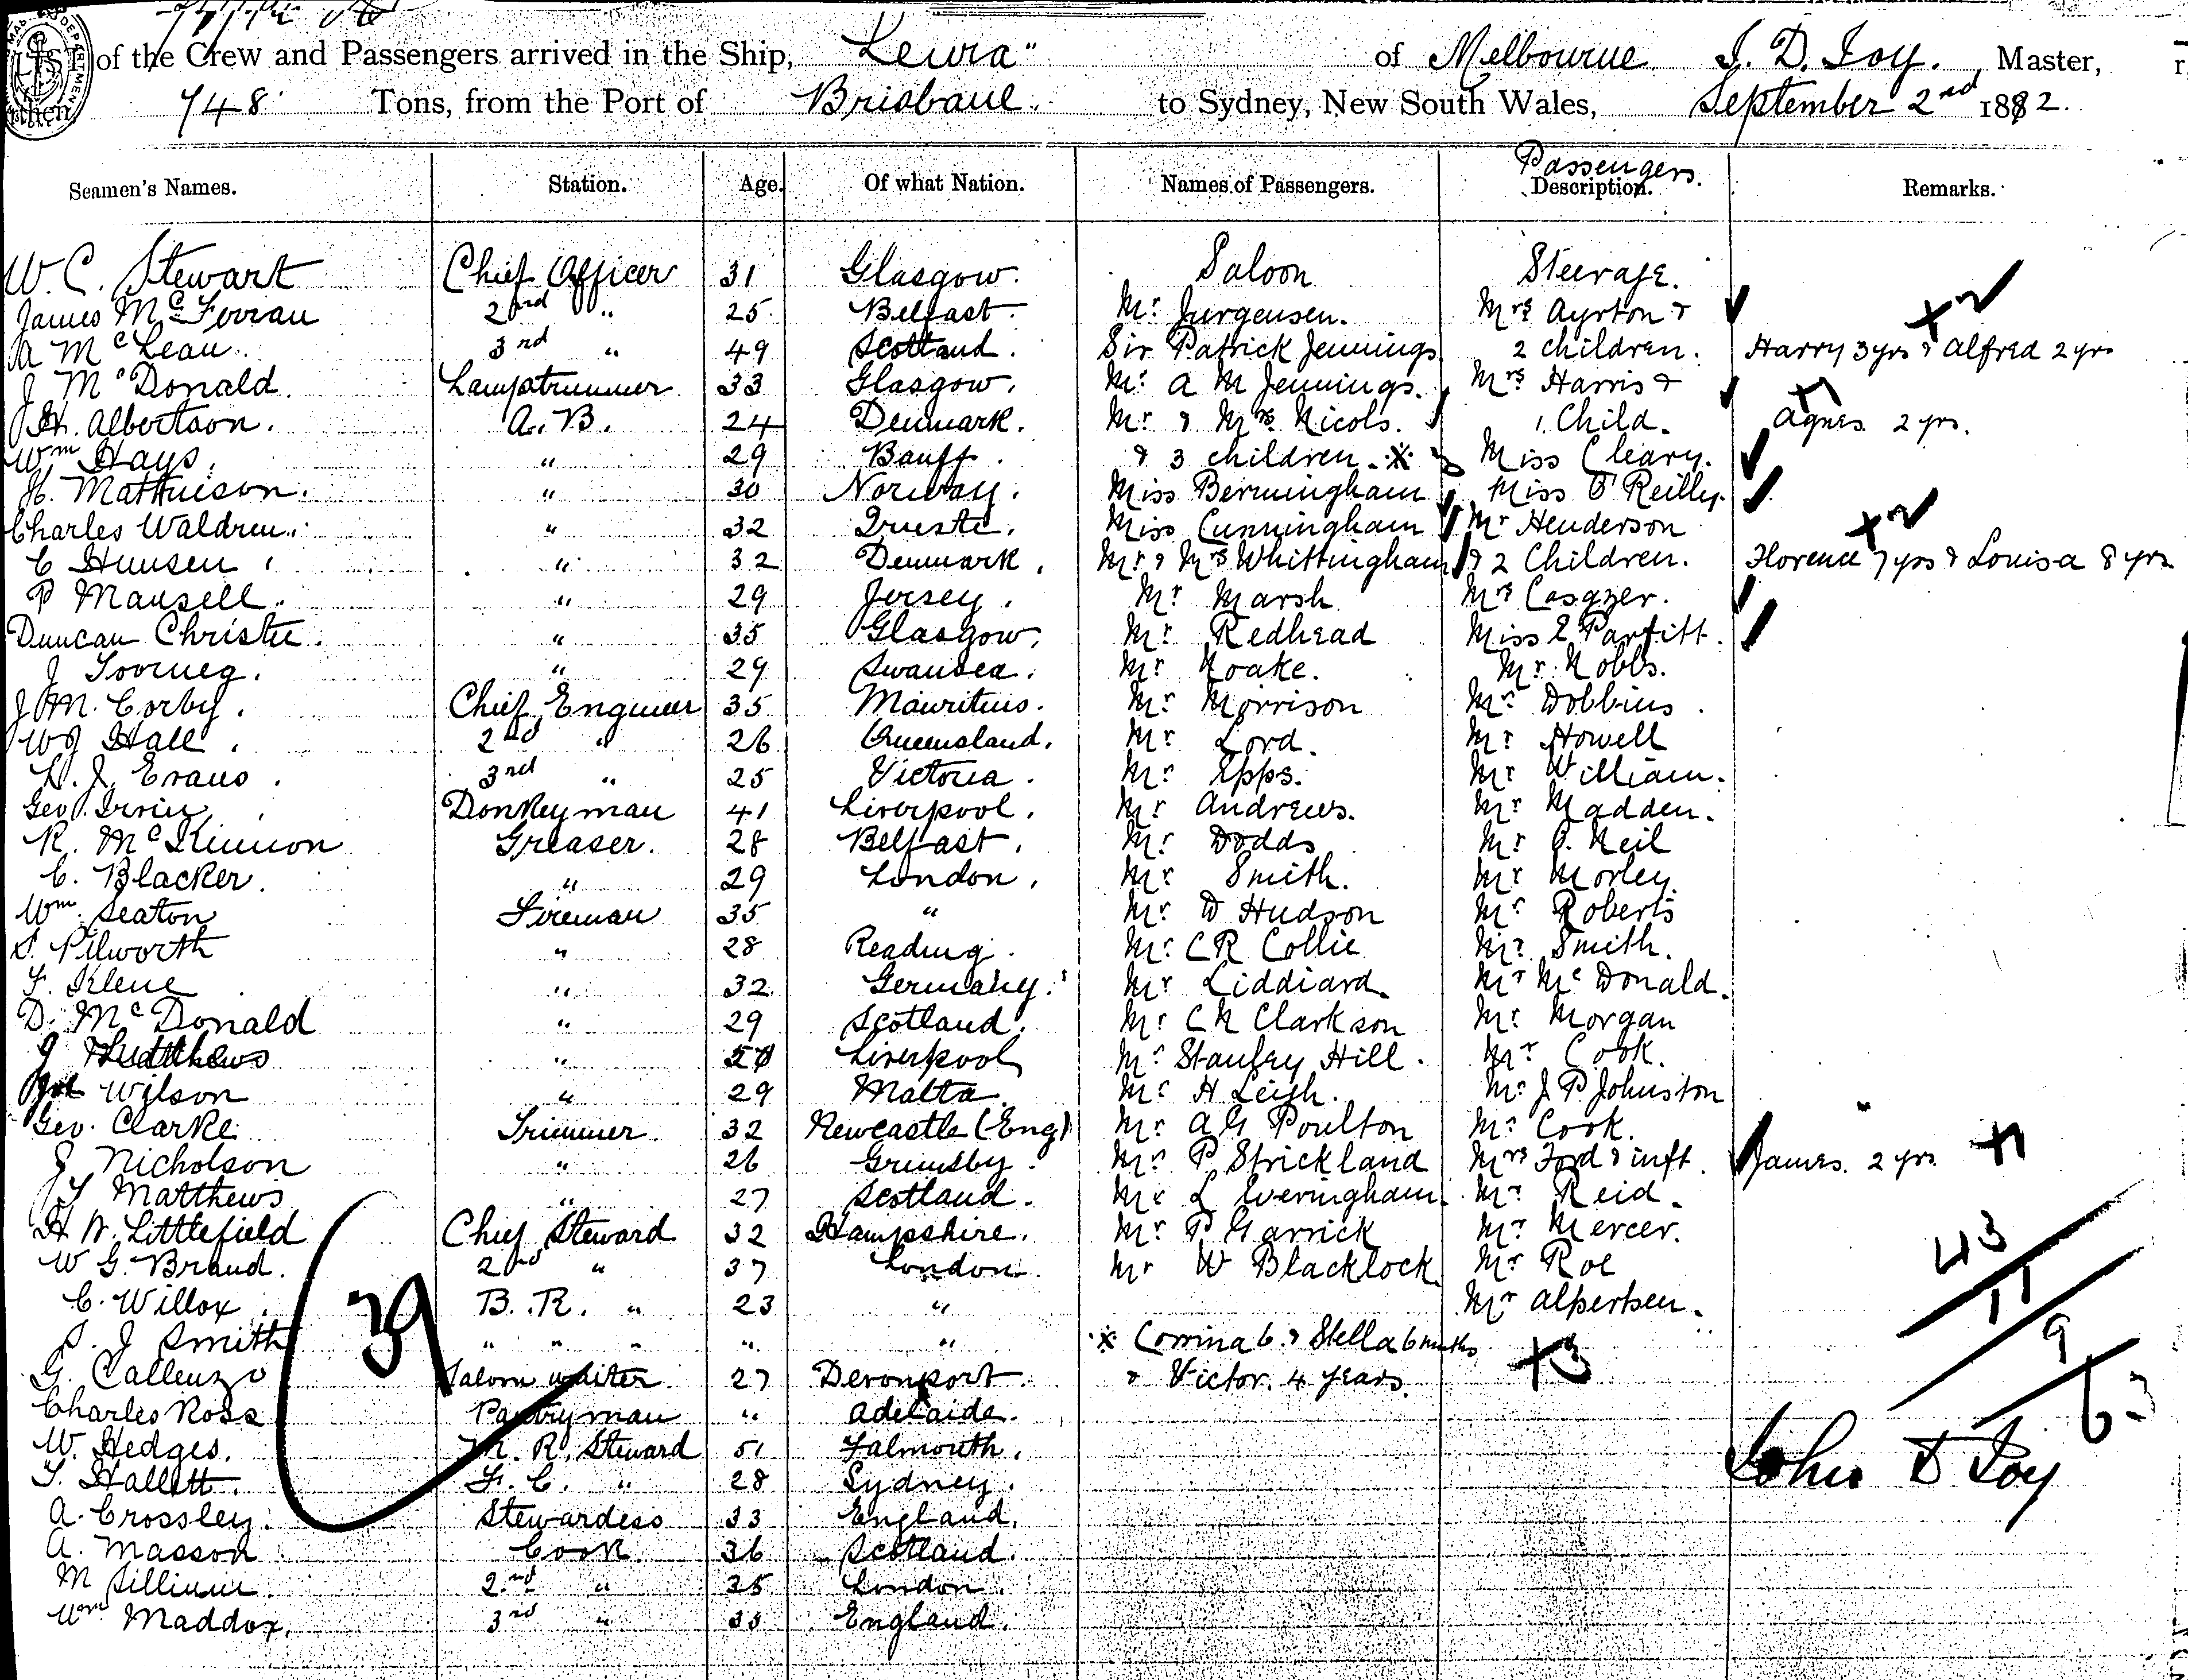 LIST of the Crew and Passengers arrived in the Ship, "Leura" of Melbourne J. D. Joy. Master,
748 Tons, from the Port of Brisbane. to Sydney, New South Wales, September 2nd 1882.
Passengers.
Seamen's Names. Station. Age. Of what Nation. Names of Passengers. Description. Remarks.
W. C. Stewart Chief Officer 31 Glasgow. Saloon Steerage.
James McFerran 2nd " 25 Belfast. Mr Jurgensen. Mrs Ayrton & +2
A McLean. 3rd " 49 Scotland. Sir Patrick Jennings 2 children. Harry 3 yrs & Alfred 2 yrs
J McDonald. Lamptrimmer 33 Glasgow. Mr A M Jennings. Mrs Harris & +1
H. Albertson. A.B. 24 Denmark. Mr & Mrs Nicols. 1 Child. Agnes 2 yrs.
Wm Hays. " 29 Banff. & 3 children. ※ Miss Cleary.
H. Mathuison. " 30 Norway. Miss Bermingham Miss O'Reilly.
Charles Waldren. " 32 Trieste. Miss Cunningham Mr Henderson +2
C Hunsen " 32 Denmark. Mr & Mrs Whittingham & 2 Children. Florence 7 yrs & Louisa 8 yrs
P Mansell. " 29 Jersey. Mr Marsh Mrs
Duncan Christie. " 35 Glasgow. Mr Redhead Miss E Parfitt.
J " 29 Swansea. Mr Noake. Mr Nobbs.
J M. Corby. Chief Engineer 35 Mauritius. Mr Morrison Mr Dobbins.
W J Hall. 2nd " 26 Queensland. Mr Lord. Mr Howell
L. J. Evans. 3rd " 25 Victoria. Mr Epps. Mr William.
Geo. Irvin. Donkeyman 41 Liverpool. Mr Andrews. Mr Madden.
R. McKinnon Greaser. 28 Belfast. Mr Dodds Mr O. Neil
C. Blacker. " 29 London. Mr Smith. Mr Morley.
Wm. Seaton Fireman 35 " Mr W Hudson Mr Roberts
S. Pilworth " 28 Reading. Mr C R Collie Mr Smith.
F. Klene " 32 Germany. Mr Liddiard. Mr McDonald.
D. McDonald " 29 Scotland. Mr C N Clarkson Mr Morgan
J Matthews " Liverpool Mr Stanley Hill. Mr Cook.
Wilson " 29 Malta. Mr H Leigh. Mr J P Johnston
Geo. Clarke Trimmer. 32 Newcastle (Eng) Mr A G Poulton Mr Cook.
J Nicholson " 26 Grimsby. Mr P Strickland Mrs Ford & inft. James. 2 yrs. +1
Y Matthews " 27 Scotland. Mr L Everingham. Mr Reid.
H W. Littlefield Chief Steward 32 Hampshire. Mr P Garrick Mr Mercer.
W G. Brand. 2nd " 37 London. Mr W Blacklock Mr Roe
C. Willox. B. R. " 23 " Mr Alpertsen.
S. J Smith " " " " " ※ Corrina 6. & Stella 6 mnths
G. Callenzo Saloon waiter. 27 Devonport. & Victor. 4 years. +3
Charles Ross Pantryman " Adelaide.
W. Hedges. M. R. Steward 51 Falmouth.
T. Hallett. F. C. " 28 Sydney.
A. Crossley. Stewardess 33 England.
A. Masson Cook 36 Scotland.
M " 2nd " 25 London.
Wm Maddox. 3rd " 35 England.
39
43
11
9
63
John D Joy